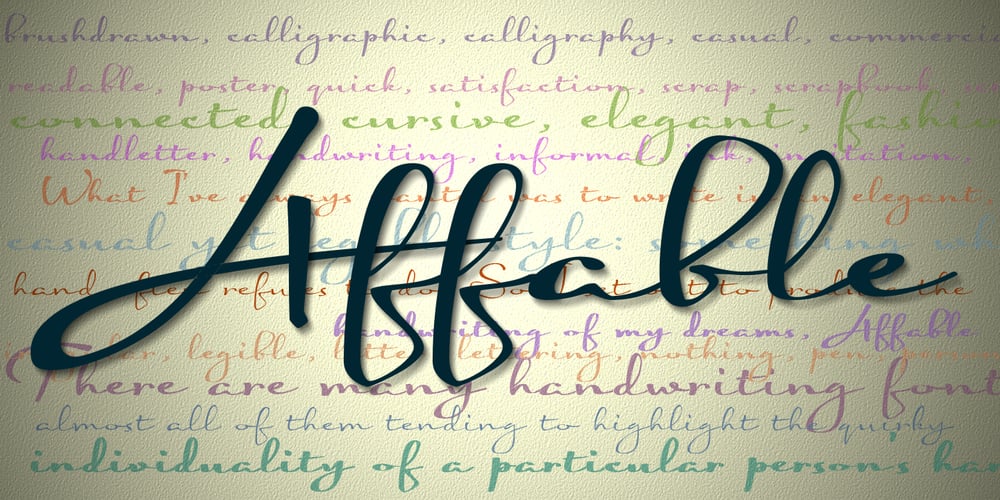 brushdrawn, calligraphic, calligraphy, casual, commercia
readable, poster, quick, satisfaction, scrap, scrapbook,
connected, cursive, elegant, fashio
handletter, handwriting, informal, ink, invitation,
What I've always wanted was to write in an elegant,
casual yet legible style: something
Affable
hand often refuses to do. So I set out to produce the
handwriting of my dreams, Affable
legible, letter, lettering, nothing, pen,
There are many handwriting font
almost all of them tending to highlight the quirky
individuality of a particular person's han